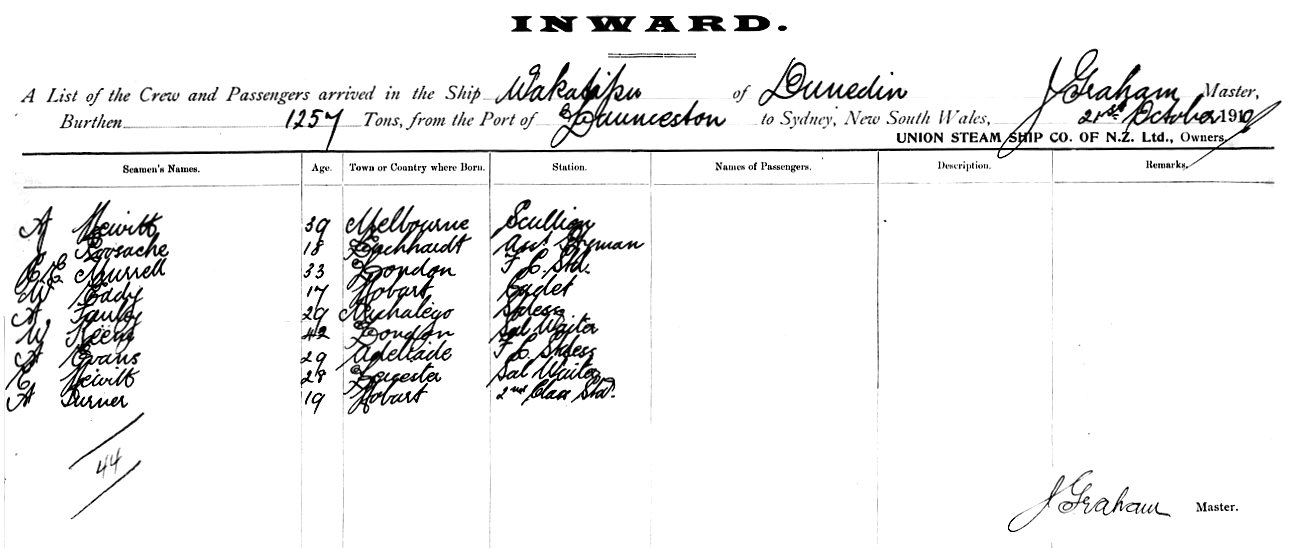 INWARD.
A List of the Crew and Passengers arrived in the Ship Wakatipu of Dunedin J Graham Master,
Burthen 1257 Tons, from the Port of Launceston to Sydney, New South Wales, 21st October 1910
UNION STEAM SHIP CO. OF N.Z. Ltd., Owners.
Seamen's Names. Age. Town or Country where Born. Station. Names of Passengers. Description. Remarks.
A Hewitt 39 Melbourne Scullion
J 18 Leichhardt
Murrell 33 London F. C. Std.
W Eady 17 Hobart Cadet
A 29 Stdess
W 42 London Sal Waiter
A Evans 29 Adelaide F C Stdess
E Hewitt 28 Leicester Sal Waiter
A Turner 19 Hobart 2nd Class Std.
44
J Graham Master.